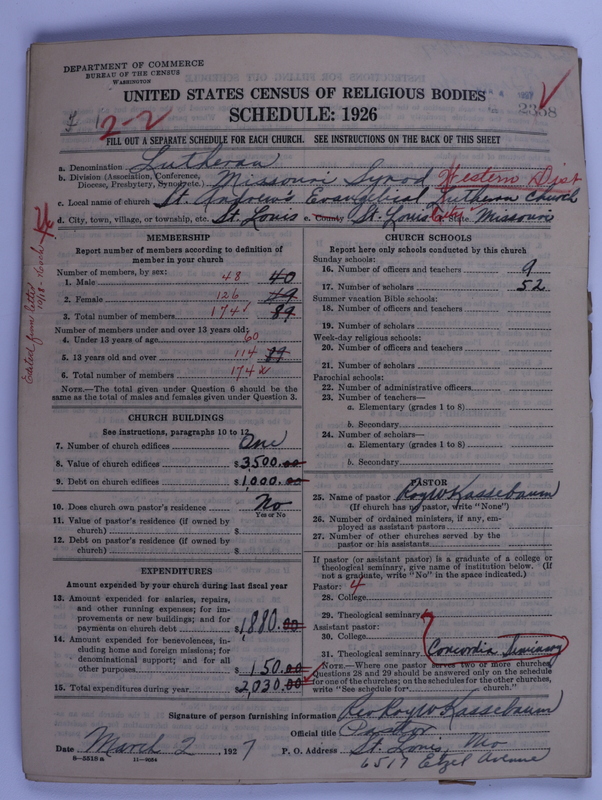 DEPARTMENT OF COMMERCE
BUREAU OF THE CENSUS
WASHINGTON
UNITED STATES CENSUS OF RELIGIOUS BODIES
SCHEDULE: 1926
2358
2-2
FILL OUT A SEPARATE SCHEDULE FOR EACH CHURCH. SEE INSTRUCTIONS ON THE BACK OF THIS SHEET
a. Denomination Lutheran
b. Division (Association, Conference, Diocese, Presbytery, Synod, etc.) Missouri Synod Western Dist
c. Local name of church St. Andrew's Evangelical Lutheran Church
d. City, town, village, or township, etc. St. Louis e. County St. Louis City f. State Missouri
MEMBERSHIP
Report number of members according to definition of
member in your church
Number of members, by sex:
1. Male 48 40
2. Female 126 49
3. Total number of members 174 89
Number of members under and over 13 years old:
4. Under 13 years of age 60
5. 13 years old and over 114 89
6. Total number of members 174
NOTE.—The total given under Question 6 should be
same as the total of males and females given under Question 3.
CHURCH BUILDINGS
See instructions, paragraphs 10 to 12
7. Number of church edifices One
8. Value of church edifices $ 3500.00
9. Debt on church edifices $ 1,000.00
10. Does church own pastor's residence No
Yes or No
11. Value of pastor's residence (if owned by
church) $
12. Debt on pastor's residence (if owned by
church) $
EXPENDITURES
Amount expended by your church during last fiscal year
13. Amount expended for salaries, repairs,
and other running expenses; for im-
provements or new buildings; and for
payments on church debt $ 1,880.00
14. Amount expended for benevolences, in-
cluding home and foreign missions; for
denominational support; and for all
other purposes $ 150.00
15. Total expenditures during year $ 2,030.00
CHURCH SCHOOLS
Report here only schools conducted by this church
Sunday schools:
16. Number of officers and teachers 9
17. Number of scholars 52
Summer vacation Bible schools:
18. Number of officers and teachers
19. Number of scholars
Week-day religious schools:
20. Number of officers and teachers
21. Number of scholars
Parochial schools:
22. Number of administrative officers
23. Number of teachers—
a. Elementary (grades 1 to 8)
b. Secondary
24. Number of scholars—
a. Elementary (grades 1 to 8)
b. Secondary
PASTOR
25. Name of pastor Roy W Kassebaum
(If church has no pastor, write "None")
26. Number of ordained ministers, if any, em-
ployed as assistant pastors
27. Number of other churches served by the
pastor or his assistants
If pastor (or assistant pastor) is a graduate of a college or
theological seminary, give name of institution below. (If
not a graduate, write "No" in the space indicated.)
Pastor: 4
28. College
29. Theological seminary
Assistant pastor:
30. College
31. Theological seminary Concordia Seminary
NOTE.—Where one pastor serves two or more churches,
Questions 28 and 29 should be answered only on the schedule
for one of the churches; on the schedules for the other churches,
write "See schedule for church."
Signature of person furnishing information Rev Roy W Kassebaum
Official title Pastor
Date March 2 1927 P. O. Address St. Louis, Mo
6517 Etzel Avenue
8-5518 a